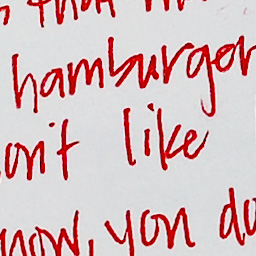 that
hamburger
on't like
now, you do